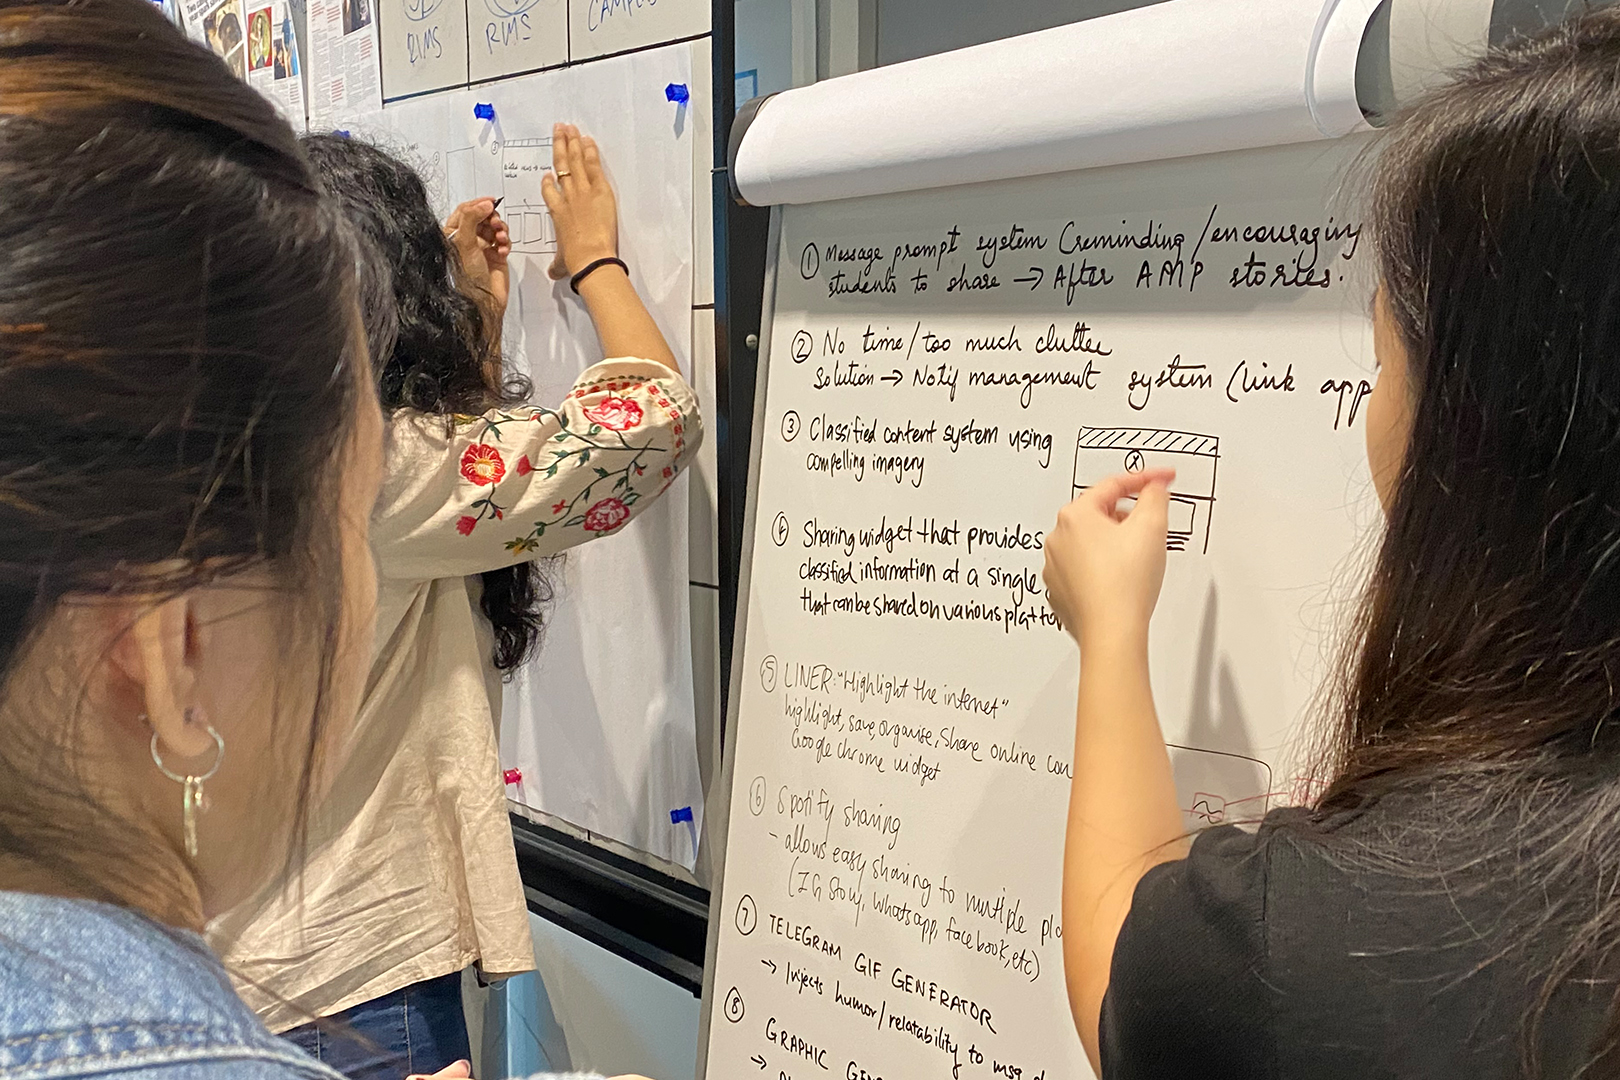 RIMS
RMS
CAMPUS
① Message prompt system (reminding/encouraging
students to share → After AMP stories.
② No time/too much clutter
Solution → Notif management system (link app
③ Classified content system using
compelling imagery
④ Sharing widget that provides
classified information at a single
that can be shared on various platfo
⑤ LINER: "Highlight the internet"
highlight, save, organise, share online con
Google chrome widget
⑥ Spotify sharing
- allows easy sharing to multiple pla
(IG story, whatsapp, facebook, etc)
⑦ TELEGRAM GIF GENERATOR
→ Injects humor/relatability to msg
⑧ GRAPHIC GEN
→